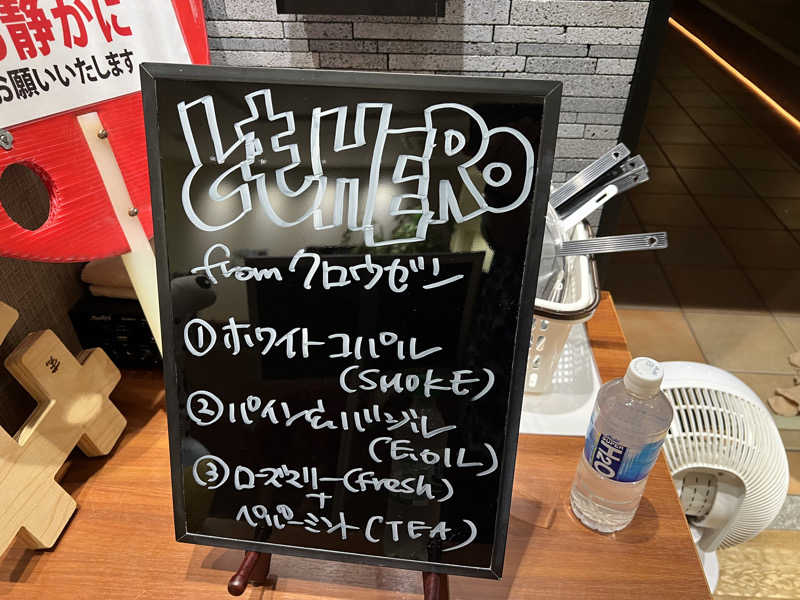 お静かに
お願いいたします
ともHERO
from クロウゼン
①ホワイトコパル
(SMOKE)
②パイン&バジル
(E.OIL)
③ローズマリー(fresh)
+
ペパーミント(TEA)
SUPER
H2O